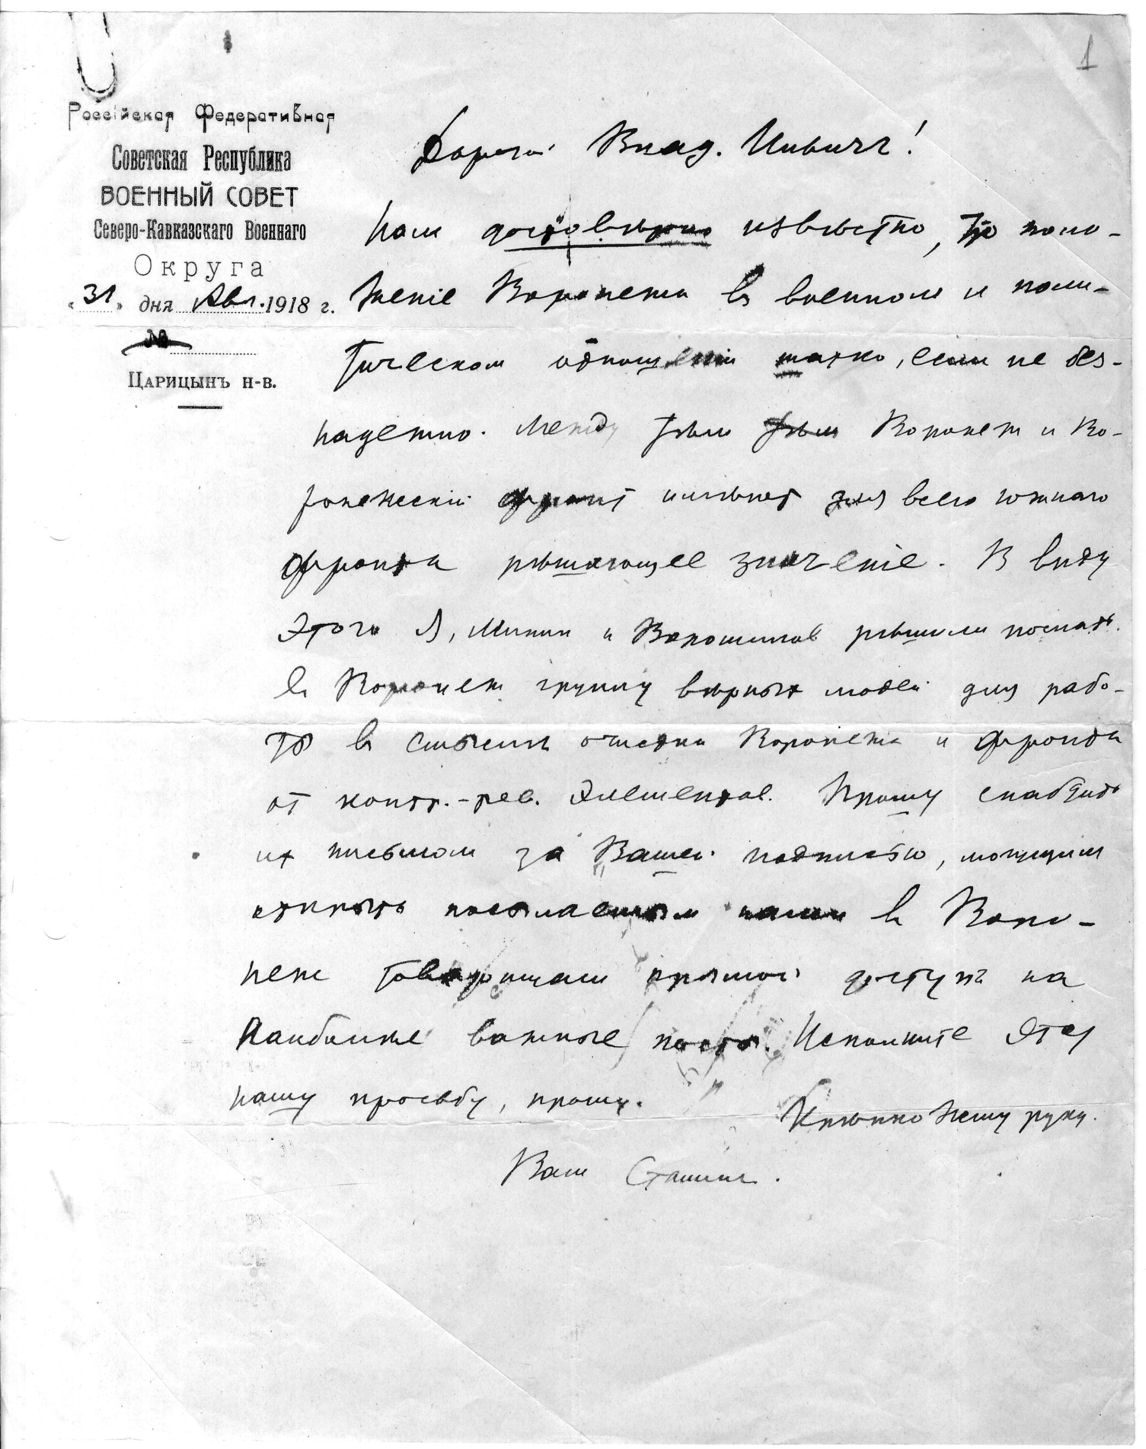 1
Россійская Федеративная
Советская Республика
ВОЕННЫЙ СОВЕТ
Северо-Кавказскаго Военнаго
Округа
«31» дня Авг. 1918 г.
№
Царицынъ н-в.
Дорогой Влад. Ильичъ!
Нам достовѣрно извѣстно, что поло-
женіе Воронежа в военном и поли-
тическом отношеніи шатко, если не без-
надежно. Между тѣм тѣм Воронеж и Во-
ронежскій фронт имѣют для всего южнаго
фронта рѣшающее значеніе. В виду
этого я, Минин и Ворошилов рѣшили послать
в Воронеж группу вѣрных людей для рабо-
ты в смыслѣ очистки Воронежа и фронта
от контр.-рев. элементов. Прошу снабдить
их письмом за Вашей подписью, могущим
открыть посылаемым нами в Воро-
неж товарищам прямой доступ на
наиболѣе важные посты. Исполните эту
нашу просьбу, прошу.
Крѣпко жму руку.
Ваш Сталин.